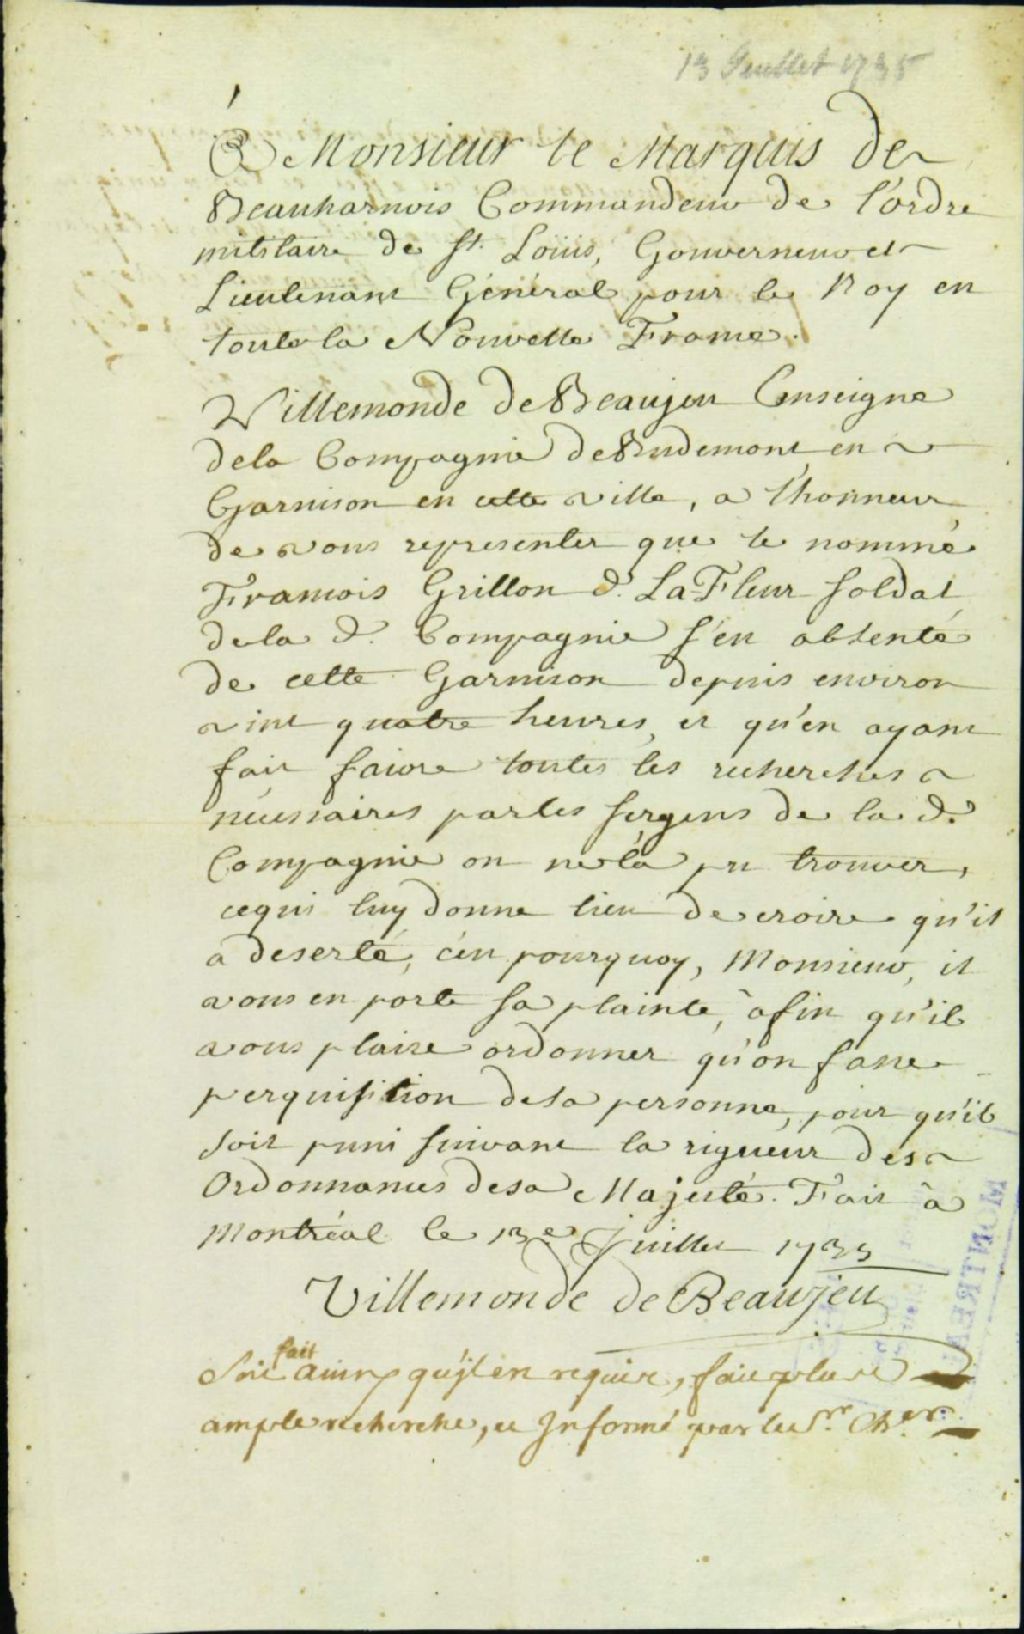 13 Juillet 1735
A Monsieur le Marquis de
Beauharnois Commandeur de l'ordre
militaire de St. Loüis, Gouverneur et
Lieutenant Général pour le Roy en
toute la Nouvelle France.
Villemonde de Beaujeu Enseigne
dela Compagnie de Budemont en
Garnison en cette ville, a l'honneur
de vous representer que le nommé
Francois Grillon d. La Fleur soldat
dela d. Compagnie s'est absenté
de cette Garnison depuis environ
vint quatre heures, et qu'en ayant
fait faire toutes les recherches
nécessaires par les sergens de la de.
Compagnie on ne l'a pu trouver,
cequi luy donne lieu de croire qu'il
a deserté, c'est pourquoy, Monsieur, il
vous en porte sa plainte, àfin qu'il
vous plaise ordonner qu'on fasse
perquisition desa personne, pour qu'il
soit puni suivant la rigueur des
Ordonnances desa Majesté. Fait à
Montréal le 13e Juillet 1735
Villemonde de Beaujeu
Soit fait ainsy qu'jl est requis, fait plus
ample recherche, et Informé par le Sr. Cher.
MONTREAL